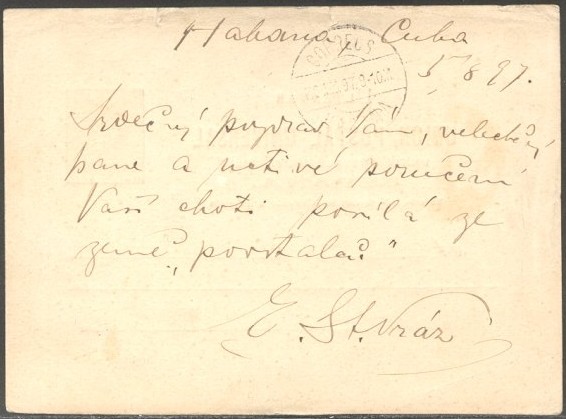 Habana, Cuba
CORREOS
5 8 97.
Srdečný pozdrav Vám, velectěný
pane a uctivé poručení
Vaší choti posílá ze
země „povstalců"
E. St. Vráz